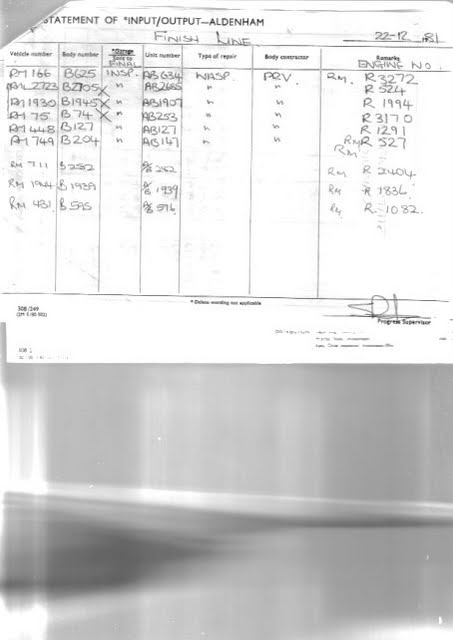 STATEMENT OF *INPUT/OUTPUT—ALDENHAM
FINISH LINE 22-12 1981
Vehicle number Body number *Garage Sent to FINAL INSP. Unit number Type of repair Body contractor Remarks ENGINE NO.
RM 166 B625 " AB634 WASP. PRV. RM. R 3272
RM 2723 B2705 X " AB2685 " " R 524
RM 1930 B1945 X " AB1907 " " R 1994
RM 75 B74 X " AB253 " " R 3170
RM 448 B127 " AB127 " " R 1291
RM 749 B204 " AB147 " " RM R 527
RM
RM 711 B252 A/B 262 RM R 2404
RM 1944 B1939 A/B 1939 RM R 1836
RM 431 B595 A/B 576 RM R 1082.
308/249
* Delete wording not applicable
Progress Supervisor